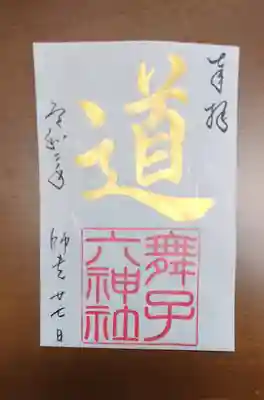 奉拝
道
舞子
六神社
令和二年 師走廿七日